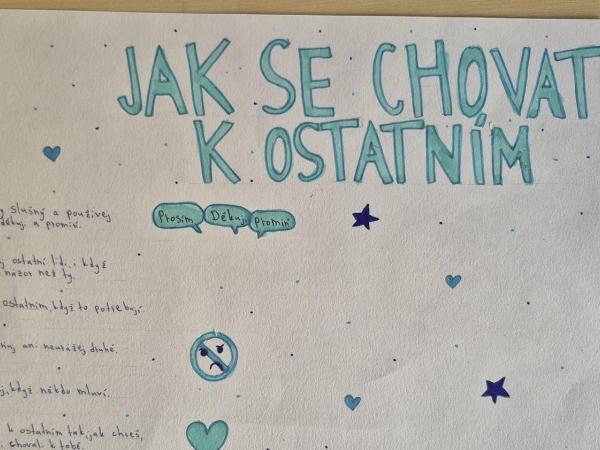 JAK SE CHOVAT
K OSTATNÍM
slušný a používej
děkuj a promiň.
Prosím Děkuj Promiň
ostatní lidi, i když
názor než ty.
ostatním, když to potřebují
ani neurážej druhé.
když někdo mluví.
k ostatním tak, jak chceš,
choval k tobě.